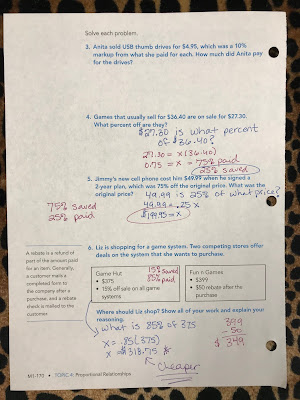 Solve each problem.
3. Anita sold USB thumb drives for $4.95, which was a 10%
markup from what she paid for each. How much did Anita pay
for the drives?
4. Games that usually sell for $36.40 are on sale for $27.30.
What percent off are they?
$27.30 is what percent
of $36.40?
27.30 = x(36.40)
0.75 = x = 75% paid
25% saved
5. Jimmy's new cell phone cost him $49.99 when he signed a
2-year plan, which was 75% off the original price. What was the
original price?
49.99 is 25% of what price?
75% saved
25% paid
49.99 = .25 x
$199.95 = x
6. Liz is shopping for a game system. Two competing stores offer
deals on the system that she wants to purchase.
A rebate is a refund of
part of the amount paid
for an item. Generally,
a customer mails a
completed form to
the company after a
purchase, and a rebate
check is mailed to the
customer.
Game Hut
• $375
• 15% off sale on all game
systems
15% saved
85% paid
Fun n Games
• $399
• $50 rebate after the
purchase
Where should Liz shop? Show all of your work and explain your
reasoning.
What is 85% of 375
x = .85(375)
x = $318.75
cheaper
399
- 50
$349
M1-170 • TOPIC 4: Proportional Relationships